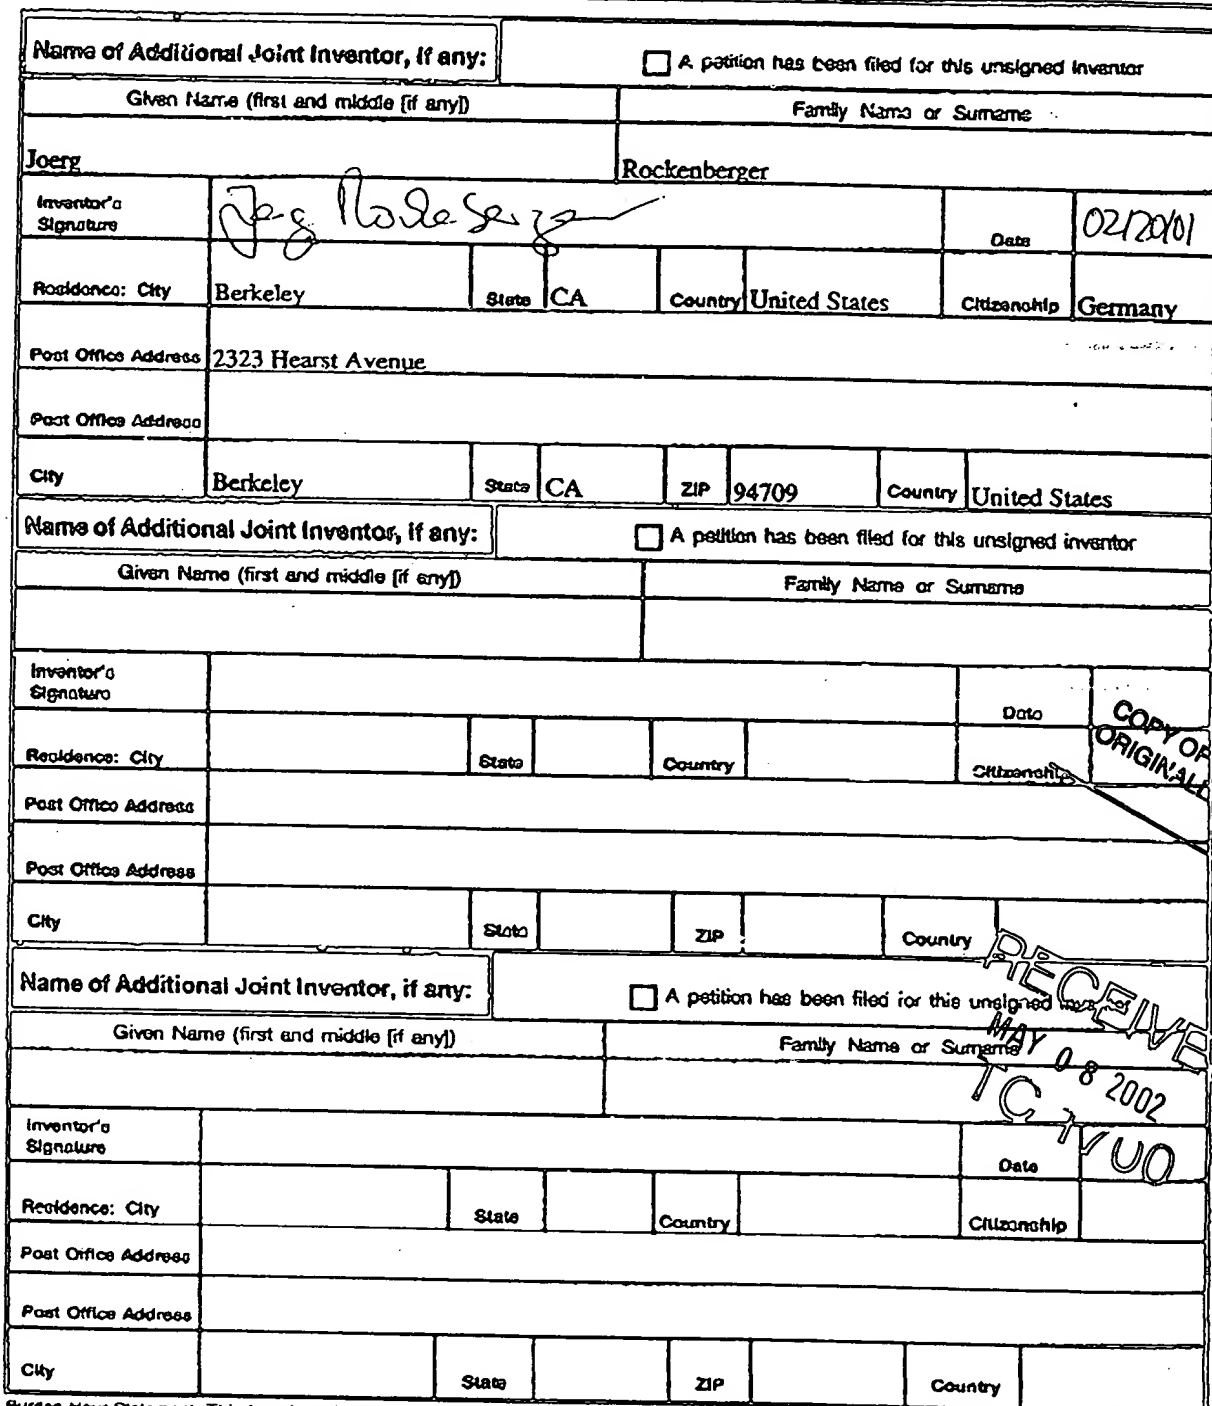 Name of Additional Joint Inventor, if any:
A petition has been filed for this unsigned inventor
Given Name (first and middle [if any])
Family Name or Surname
Joerg
Rockenberger
Inventor's
Signature
Date
02/20/01
Residence: City
Berkeley
State
CA
Country
United States
Citizenship
Germany
Post Office Address
2323 Hearst Avenue
Post Office Address
City
Berkeley
State
CA
ZIP
94709
Country
United States
Name of Additional Joint Inventor, if any:
A petition has been filed for this unsigned inventor
Given Name (first and middle [if any])
Family Name or Surname
Inventor's
Signature
Date
COPY OF
ORIGINALL
Residence: City
State
Country
Citizenship
Post Office Address
Post Office Address
City
State
ZIP
Country
RECEIVE
Name of Additional Joint Inventor, if any:
A petition has been filed for this unsigned
MAY 08 2002
Given Name (first and middle [if any])
Family Name or Surname
TC 1700
Inventor's
Signature
Date
Residence: City
State
Country
Citizenship
Post Office Address
Post Office Address
City
State
ZIP
Country